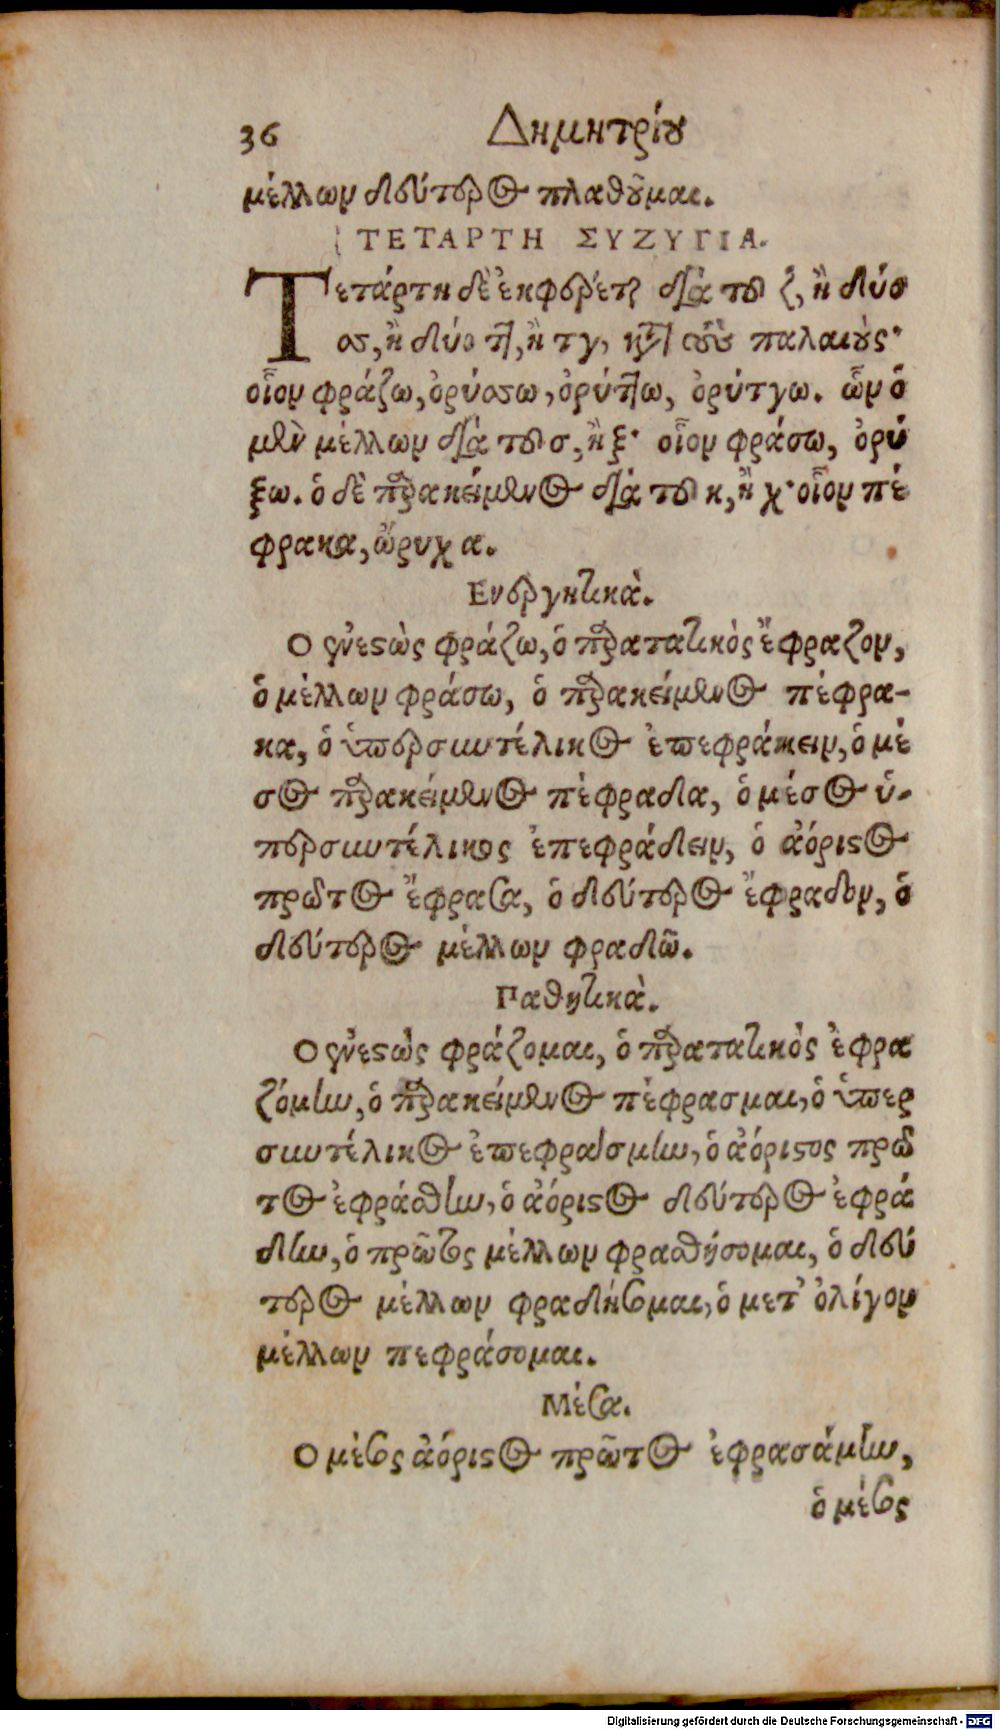 36 Δημητρίου
μέλλων δεύτερος πλαθοῦμαι.
ΤΕΤΑΡΤΗ ΣΥΖΥΓΙΑ.
Τετάρτη δὲ ἐκφέρεται διὰ τοῦ ζ, ἢ δύο
σσ, ἢ δύο ττ, ἢ τγ, κατὰ τοὺς παλαιούς·
οἷον φράζω, ὀρύσσω, ὀρύττω, ὀρύτγω. ὧν ὁ
μὲν μέλλων διὰ τοῦ σ, ἢ ξ· οἷον φράσω, ὀρύ
ξω. ὁ δὲ παρακείμενος διὰ τοῦ κ, ἢ χ· οἷον πέ
φρακα, ὤρυχα.
Ενεργητικὰ.
Ο ἐνεστὼς φράζω, ὁ παρατατικὸς ἔφραζον,
ὁ μέλλων φράσω, ὁ παρακείμενος πέφρα-
κα, ὁ ὑπερσυντέλικος ἐπεφράκειν, ὁ μέ
σος παρακείμενος πέφραδα, ὁ μέσος ὑ-
περσυντέλικος ἐπεφράδειν, ὁ ἀόριστος
πρῶτος ἔφρασα, ὁ δεύτερος ἔφραδον, ὁ
δεύτερος μέλλων φραδῶ.
Παθητικὰ.
Ο ἐνεστὼς φράζομαι, ὁ παρατατικὸς ἐφρα
ζόμην, ὁ παρακείμενος πέφρασμαι, ὁ ὑπερ
συντέλικος ἐπεφράσμην, ὁ ἀόριστος πρῶ
τος ἐφράσθην, ὁ ἀόριστος δεύτερος ἐφρά
δην, ὁ πρῶτος μέλλων φρασθήσομαι, ὁ δεύ
τερος μέλλων φραδήσομαι, ὁ μετ' ὀλίγον
μέλλων πεφράσομαι.
Μέσα.
Ο μέσος ἀόριστος πρῶτος ἐφρασάμην,
ὁ μέσος
Digitalisierung gefördert durch die Deutsche Forschungsgemeinschaft - DFG